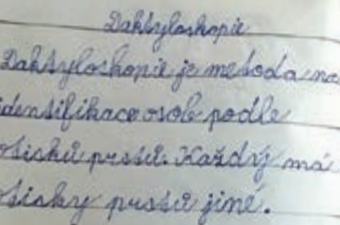 Daktyloskopie
Daktyloskopie je metoda na
identifikace osob podle
otisků prstů. Každý má
otisky prstů jiné.